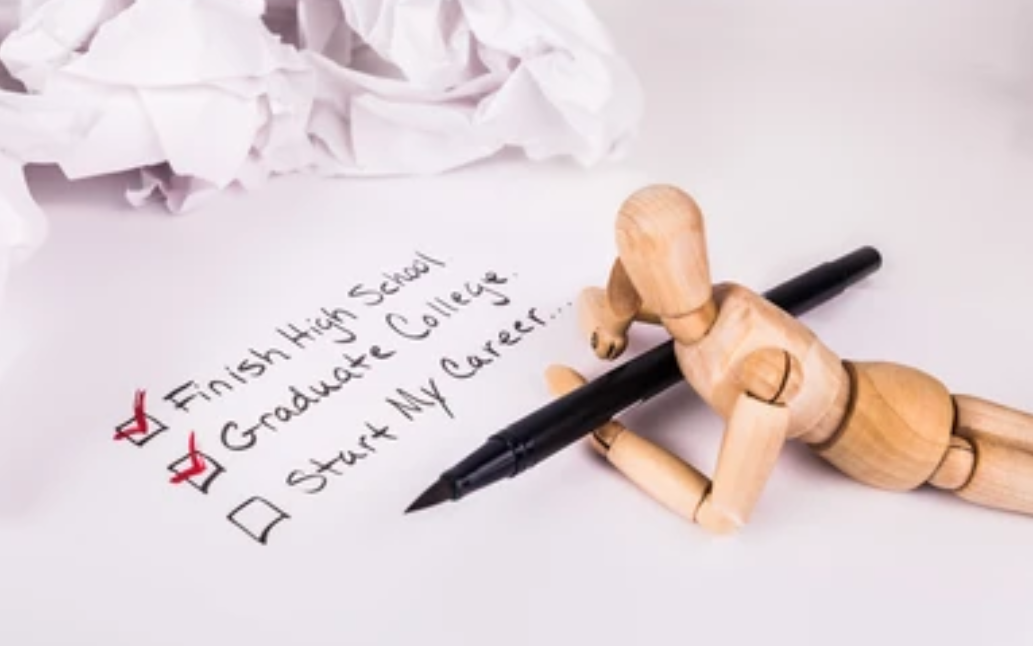 Finish High School
Graduate College.
Start My Career...